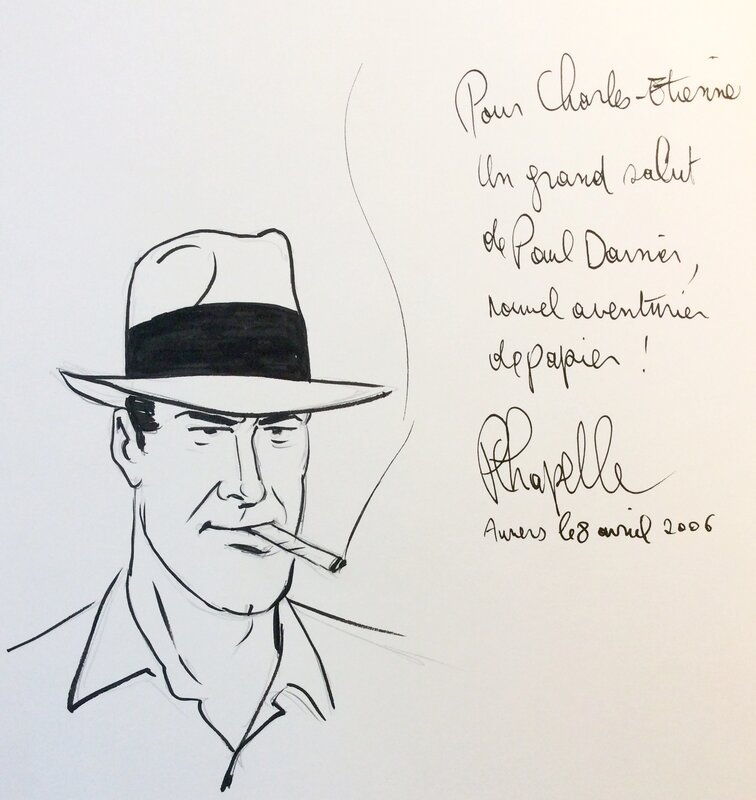 Pour Charles-Etienne
Un grand salut
de Paul Darnier,
nouvel aventurier
de papier !
PhChapelle
Auvers le 8 avril 2006